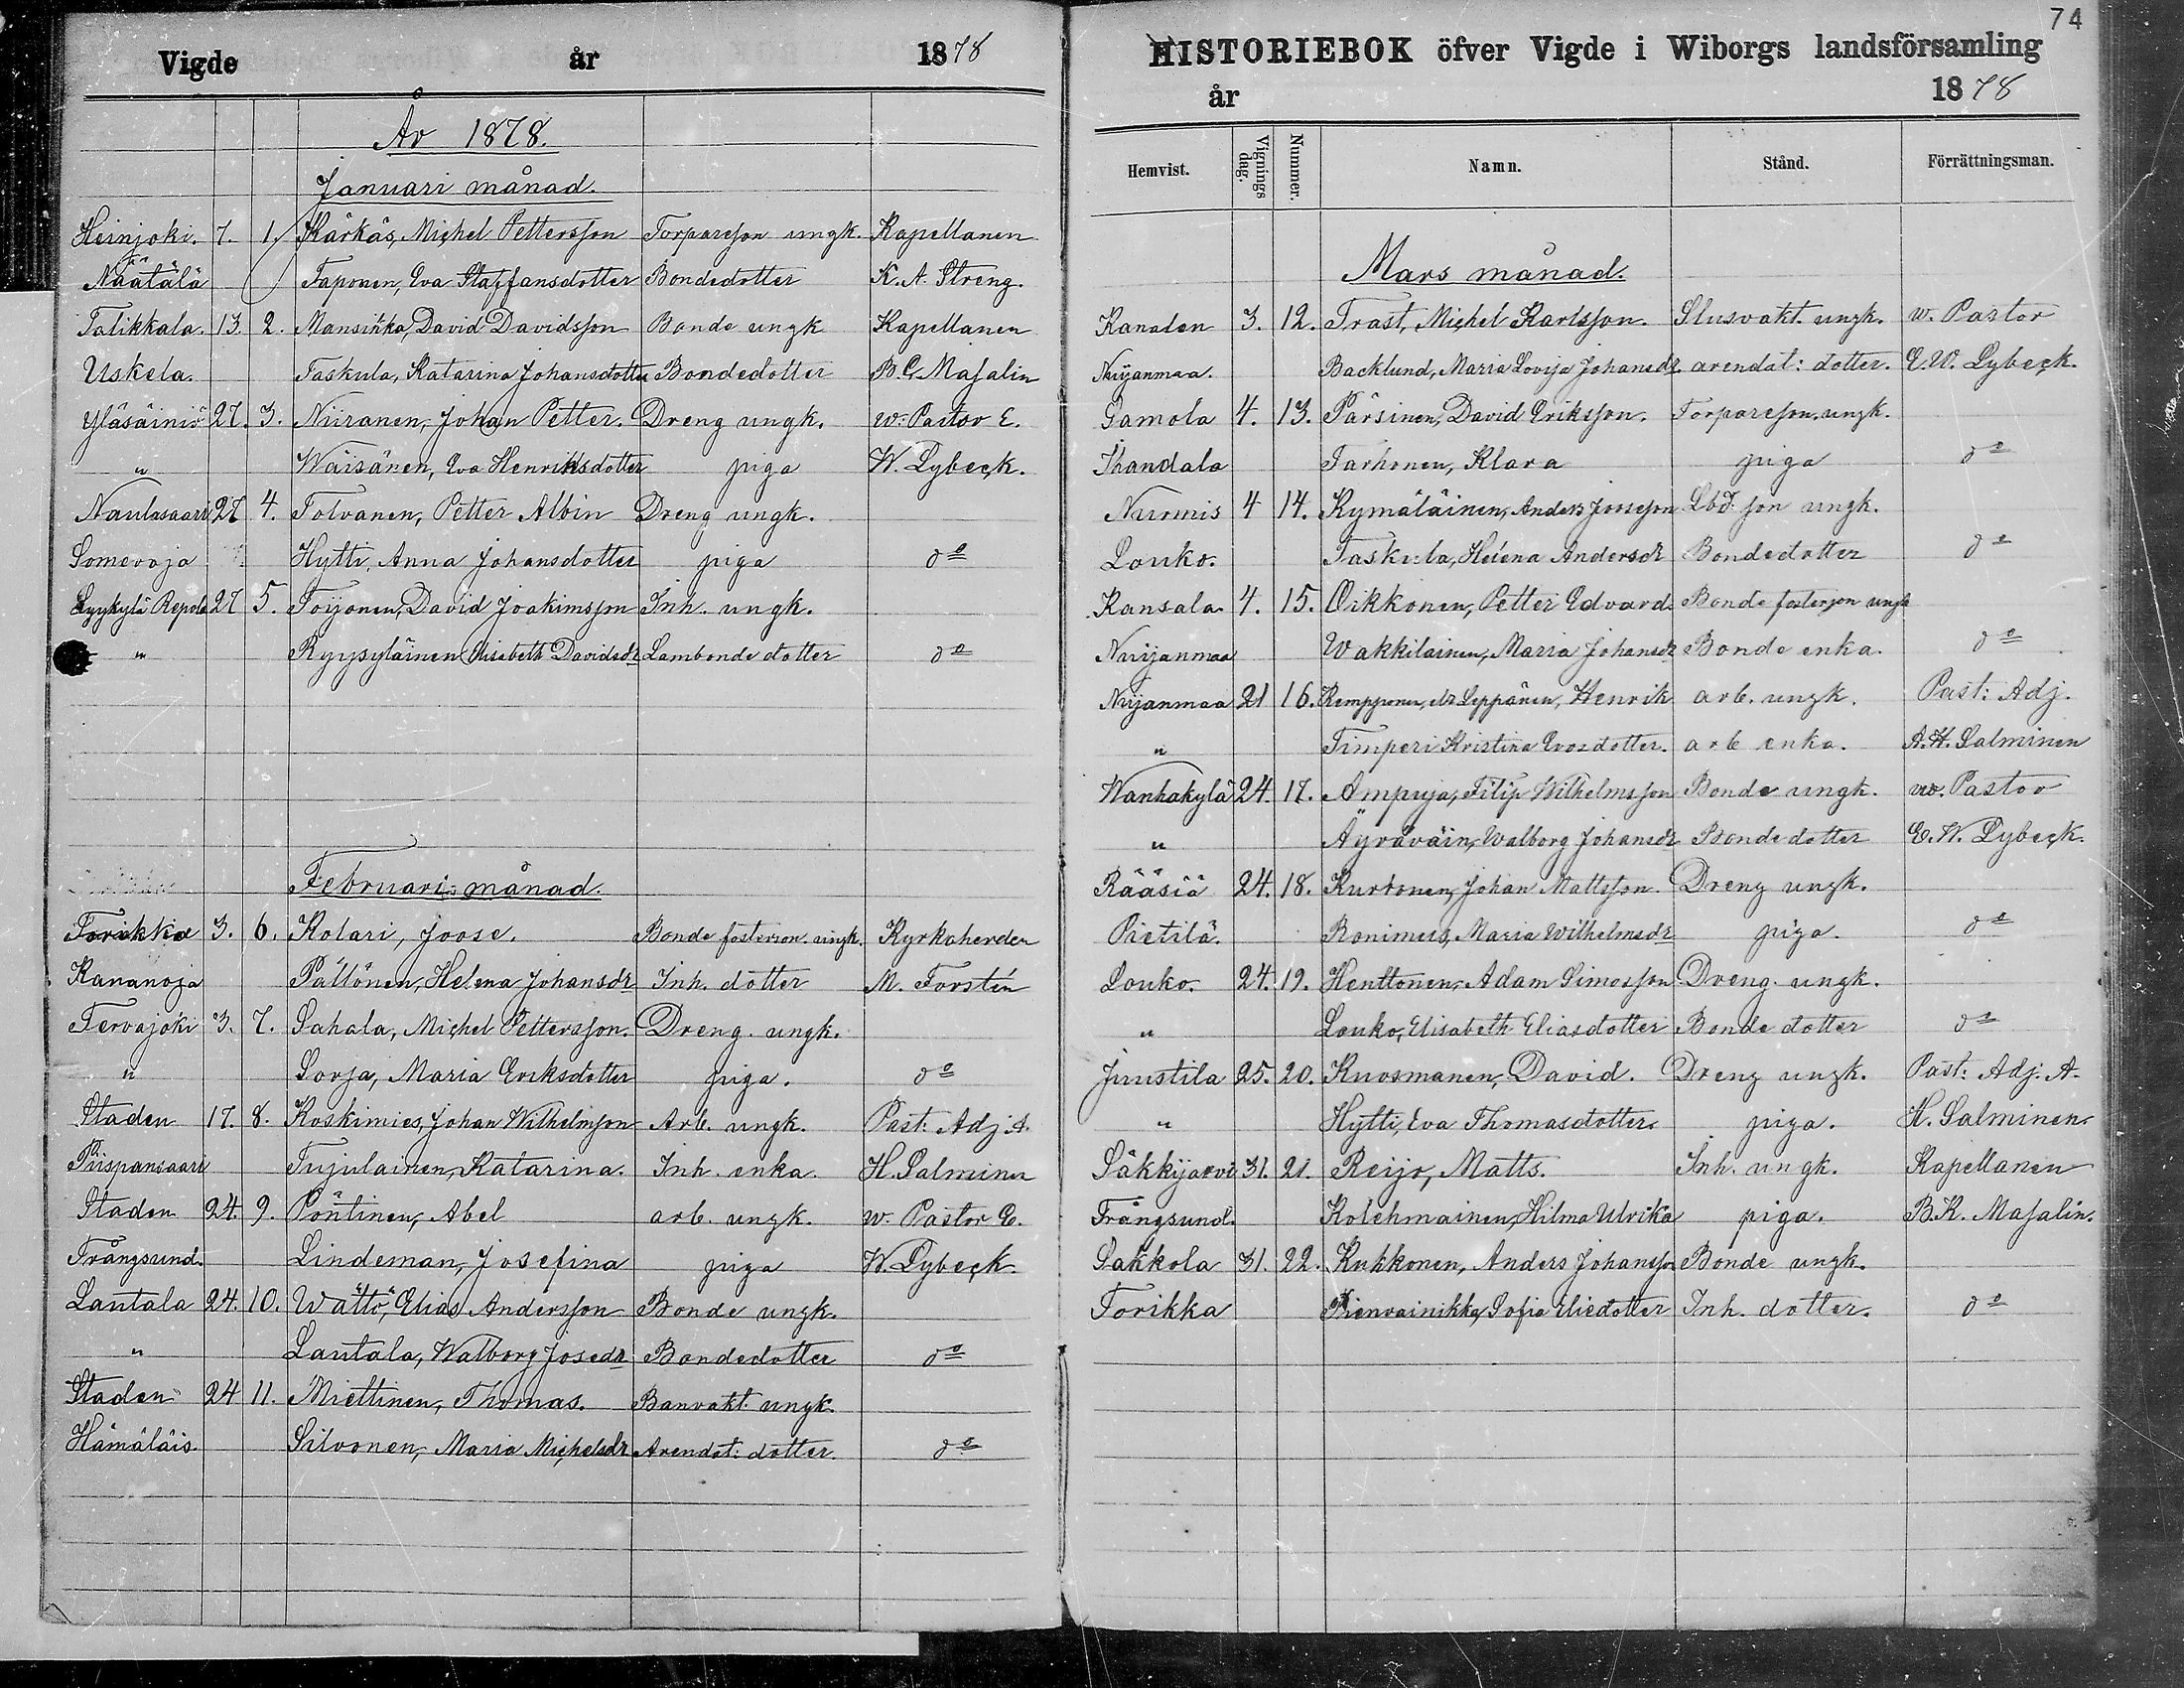 Vigde år 1878
År 1878.
Januari månad.
Heinjoki. 7. 1. Kärkäs, Michel Pettersson Torpareson ungk. Kapellanen
Näätälä Taponen, Eva Staffansdotter Bondedotter K. A. Streng.
Talikkala. 13. 2. Mansikka, David Davidsson Bonde ungk Kapellanen
Uskela. Taskula, Katarina Johansdotter Bondedotter Masalin
Yläsäiniö 27. 3. Niiranen, Johan Petter. Dreng ungk. w. Pastor E.
" Wäisänen, Eva Henriksdotter piga W. Lybeck.
Naulasaari 27 4. Tolvanen, Petter Albin Dreng ungk.
Someroja Hytti, Anna Johansdotter piga do
Lyykylä Repola 27 5. Toijonen, David Joakimsson Inh. ungk.
" Ryypyläinen Elisabeth Davidsdr Lambonde dotter do
Februari månad.
Torikka 3. 6. Kolari, Joose. Bonde fosterson ungk. Kyrkoherden
Kananoja Pältönen, Helena Johansdr Inh. dotter M. Forstén
Tervajoki 3. 7. Sahala, Michel Pettersson. Dreng. ungk.
" Sorja, Maria Eriksdotter piga. do
Staden 17. 8. Koskimies, Johan Wilhelmson Arb. ungk. Past. Adj. A.
Piispansaari Tujulainen, Katarina. Inh. enka. H. Salminen
Staden 24. 9. Pöntinen, Abel arb. ungk. w. Pastor E.
Trångsund. Lindeman, Josefina piga W. Lybeck.
Lantala 24. 10. Wättö, Elias Andersson Bonde ungk.
" Lantala, Walborg Josedr Bondedotter do
Staden 24 11. Miettinen, Thomas. Banvakt. ungk.
Hämäläis. Silvonen, Maria Michelsdr Arendat: dotter. do
74
HISTORIEBOK öfver Vigde i Wiborgs landsförsamling
år 1878
Hemvist. Vignings dag. Nummer. Namn. Stånd. Förrättningsman.
Mars månad.
Kanalen 3. 12. Trast, Michel Karlsson. Slusvakt. ungk. w. Pastor
Nuijanmaa. Backlund, Maria Lovisa Johansdr. arendat: dotter. E. W. Lybeck.
Gamola 4. 13. Pärsinen, David Eriksson. Torpareson. ungk.
Ihandala Tarhonen, Klara piga do
Nurmis 4 14. Kymäläinen, Anders Joosepson Lbd. son ungk.
Louko. Taskula, Helena Andersdr Bondedotter do
Kansala. 4. 15. Oikkonen, Petter Edvard. Bonde fosterson ungk
Nuijanmaa Wakkilainen, Maria Johansdr Bonde enka. do
Nuijanmaa 21 16. Remppinen, elr Leppänen, Henrik arb. ungk. Past: Adj.
" Timperi Kristina Evosdotter. arb enka. A. H. Salminen
Wanhakylä 24. 17. Ampuja, Filip Wilhelmsson Bonde ungk. w. Pastor
" Äyräväin, Walborg Johansdr Bonde dotter E. W. Lybeck.
Rääsiä 24. 18. Kurtonen, Johan Mattsson. Dreng ungk.
Pietilä. Ronimus, Maria Wilhelmsdr piga. do
Louko. 24. 19. Henttonen, Adam Simosson Dreng. ungk.
" Louko, Elisabeth Eliasdotter Bonde dotter do
Juustila 25. 20. Kuosmanen, David. Dreng ungk. Past: Adj. A.
" Hytti, Eva Thomasdotter piga. H. Salminen
Säkkijärvi 31. 21. Reijo, Matts. Inh. ungk. Kapellanen
Trångsund. Kolehmainen, Hilma Ulrika piga. B. K. Masalin.
Sakkola 31. 22. Kukkonen, Anders Johansson Bonde ungk.
Torikka Pienvainikka, Sofia Eliedotter Inh. dotter. do